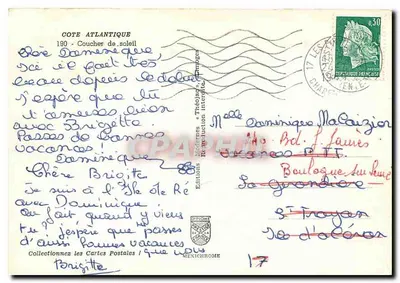 COTE ATLANTIQUE
190 - Coucher de soleil
Chère Dominique,
Ici il fait très
beau depuis le début
j'espère que tu
t'amuses bien
avec Brigitte.
Passes de bonnes
vacances!
Dominique
Chère Brigitte
Je suis à l'Ile de Ré
avec Dominique.
On fait quand y viens
tu j'espère que tu passes
d'aussi bonnes vacances
que nous
Brigitte
Collectionnez les Cartes Postales
Editions "Théojac" Limoges
Reproduction interdite
MEXICHROME
0,30
REPUBLIQUE FRANÇAISE
17 LES
Melle Dominique
Bd. J. Jaurès
Boulogne sur Seine
PTT
St Trojan
Ile d'oléron
17